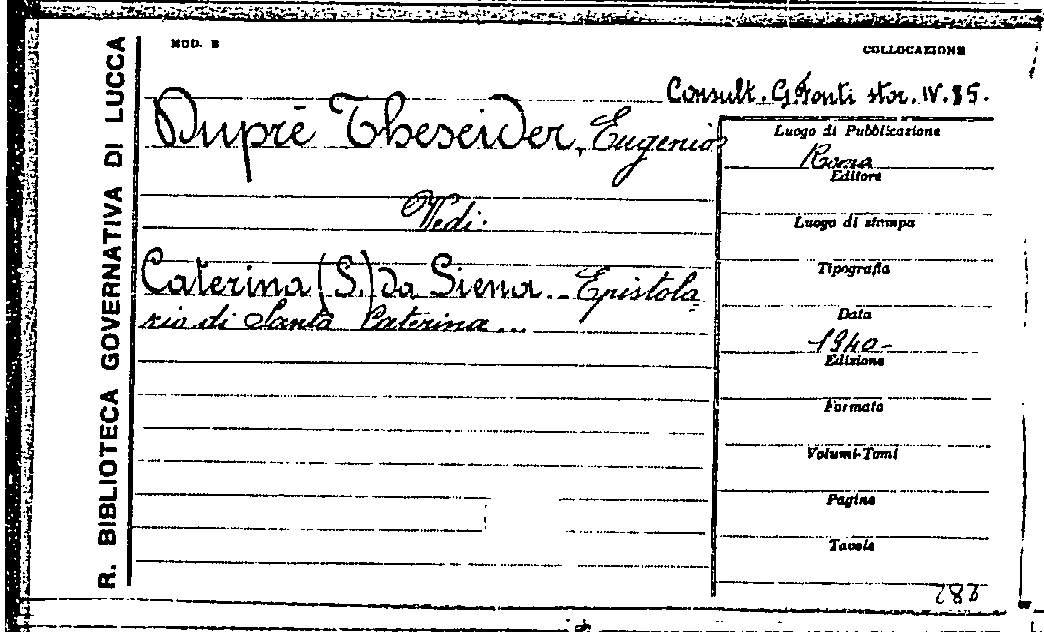 R. BIBLIOTECA GOVERNATIVA DI LUCCA
MOD. E
COLLOCAZIONE
Consult. G. Fonti stor. IV. 85.
Dupré Theseider, Eugenio
Vedi:
Caterina (S.) da Siena. - Epistola-
rio di Santa Caterina...
Luogo di Pubblicazione
Roma
Editore
Luogo di stampa
Tipografia
Data
1940-
Edizione
Formato
Volumi-Tomi
Pagine
Tavole